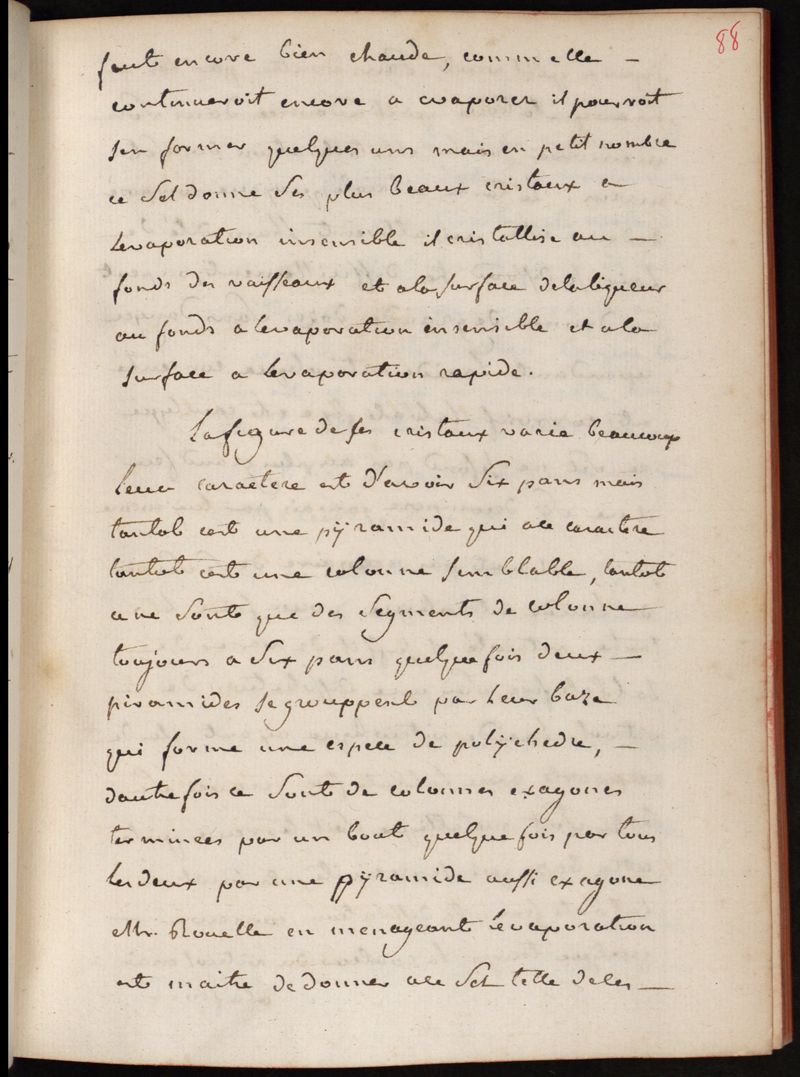 88
faut encore bien chaude, comme elle —
continueroit encore a evaporer il pourroit
sen former quelques uns mais en petit nombre
ce Sel donne Ses plus beaux cristaux a
levaporation insensible il cristallise au —
fonds des vaisseaux et ala surface delaliqueur
au fonds a levaporation insensible et ala
surface a levaporation rapide.
La figure de ses cristaux varie beaucoup
leur caractere est d'avoir Six pans mais
tantot cest une pÿramide qui a ce caractere
tantot cest une colonne semblable, tantot
ce ne Sont que des Segments de colonne
toujours a Six pans quelque fois deux —
piramides se grouppent par leur baze
qui forme une espece de polÿhedre, —
dautrefois ce Sont de colonnes exagones
terminees par un bout quelque fois par tous
les deux par une pÿramide aussi exagone
Mr. Rouelle en menageant l'evaporation
est maitre de donner a ce Sel telle de ces —